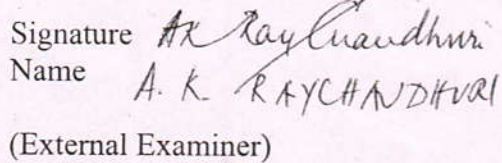 Signature AK Raychaudhuri
Name
A. K. RAYCHAUDHURI
(External Examiner)